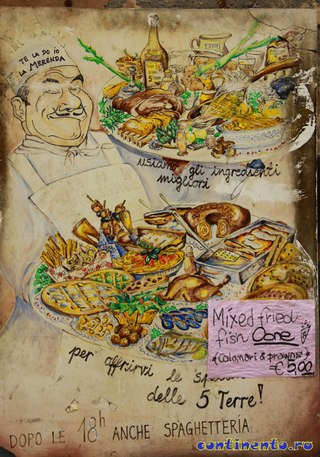 TE LA DO IO
LA MERENDA
usiamo gli ingredienti
migliori
Mixed fried
fish Cone
(Calamari & prawns)
€ 5,00
per offrirvi le
delle 5 Terre!
DOPO LE 18h ANCHE SPAGHETTERIA
continento.ru